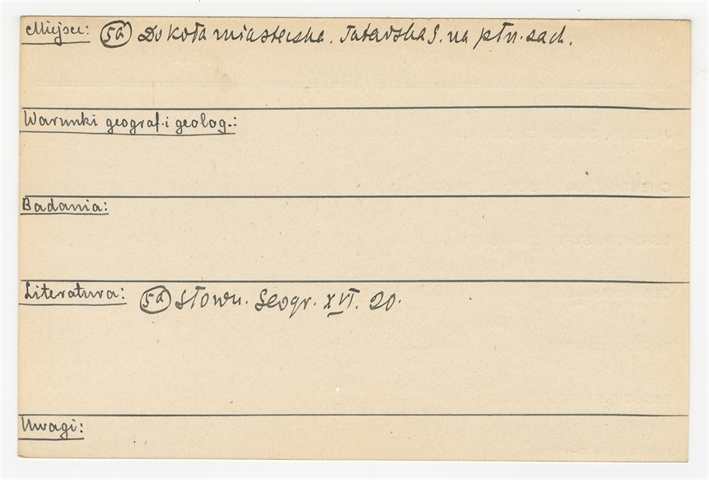 Miejsce: 5a Dokoła miasteczka. Tatarska g. na płn. zach.
Warunki geograf. i geolog.:
Badania:
Literatura: 5a Słown. Geogr. XVI. 20.
Uwagi: